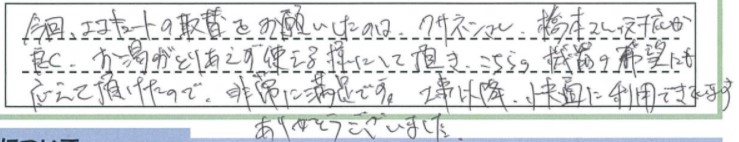 今回、エコキュートの取替をお願いしたのは、クサネンさん、橋本さん対応が
良く、お湯がとりあえず使える様にして頂き、こちらの機器の希望にも
応えて頂けたので、非常に満足です。工事以降、快適に利用できてます
ありがとうございました。